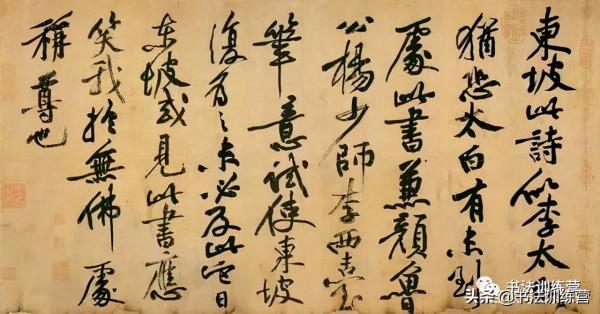 東坡此詩似李太白
猶恐太白有未到
處此書兼顏魯
公楊少師李西臺
筆意試使東坡
復為之未必及此它日
東坡或見此書應
笑我於無佛處
稱尊也
书法训练营
头条@书法训练营